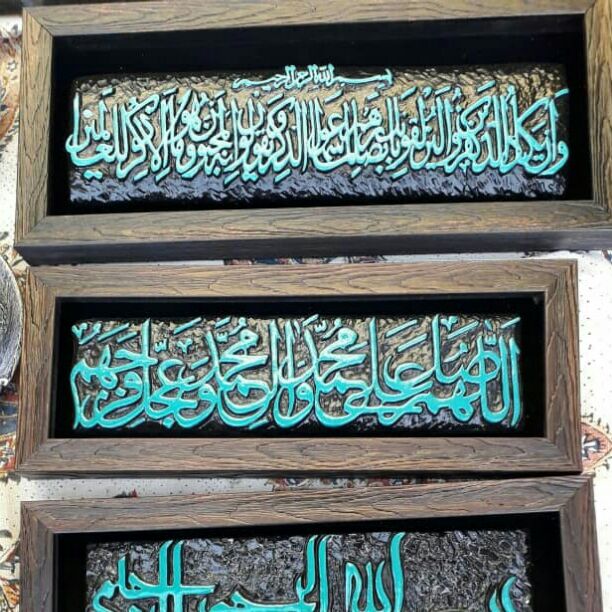 بسم الله الرحمن الرحيم
وإن يكاد الذين كفروا ليزلقونك بأبصارهم لما سمعوا الذكر ويقولون إنه لمجنون وما هو إلا ذكر للعالمين
اللهم صل على محمد وآل محمد وعجل فرجهم
بسم الله الرحمن الرحيم